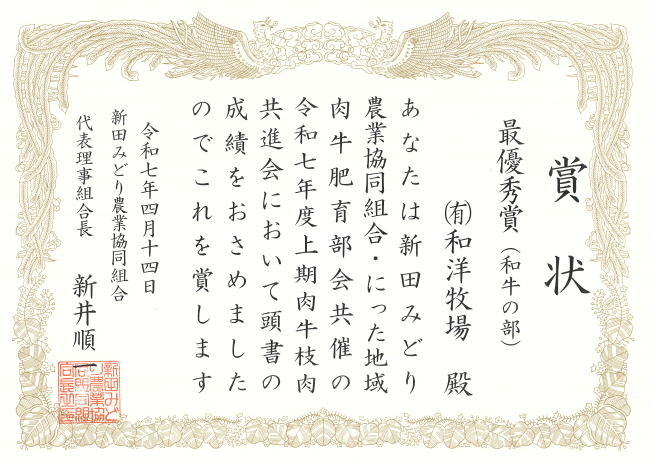 賞状
最優秀賞（和牛の部）
㈲和洋牧場 殿
あなたは新田みどり
農業協同組合・にった地域
肉牛肥育部会共催の
令和七年度上期肉牛枝肉
共進会において頭書の
成績をおさめました
のでこれを賞します
令和七年四月十四日
新田みどり農業協同組合
代表理事組合長 新井順一